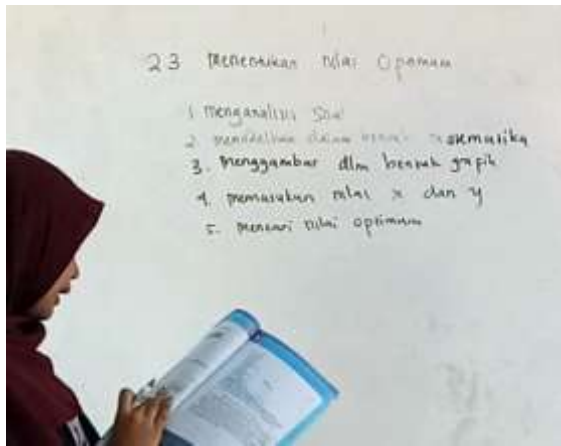 23 Menentukan nilai Optimum
1 Menganalisis Soal
2 memodelkan dalam bentuk matematika
3. Menggambar dlm bentuk grafik
4. memasukan nilai x dan y
5. mencari nilai optimum